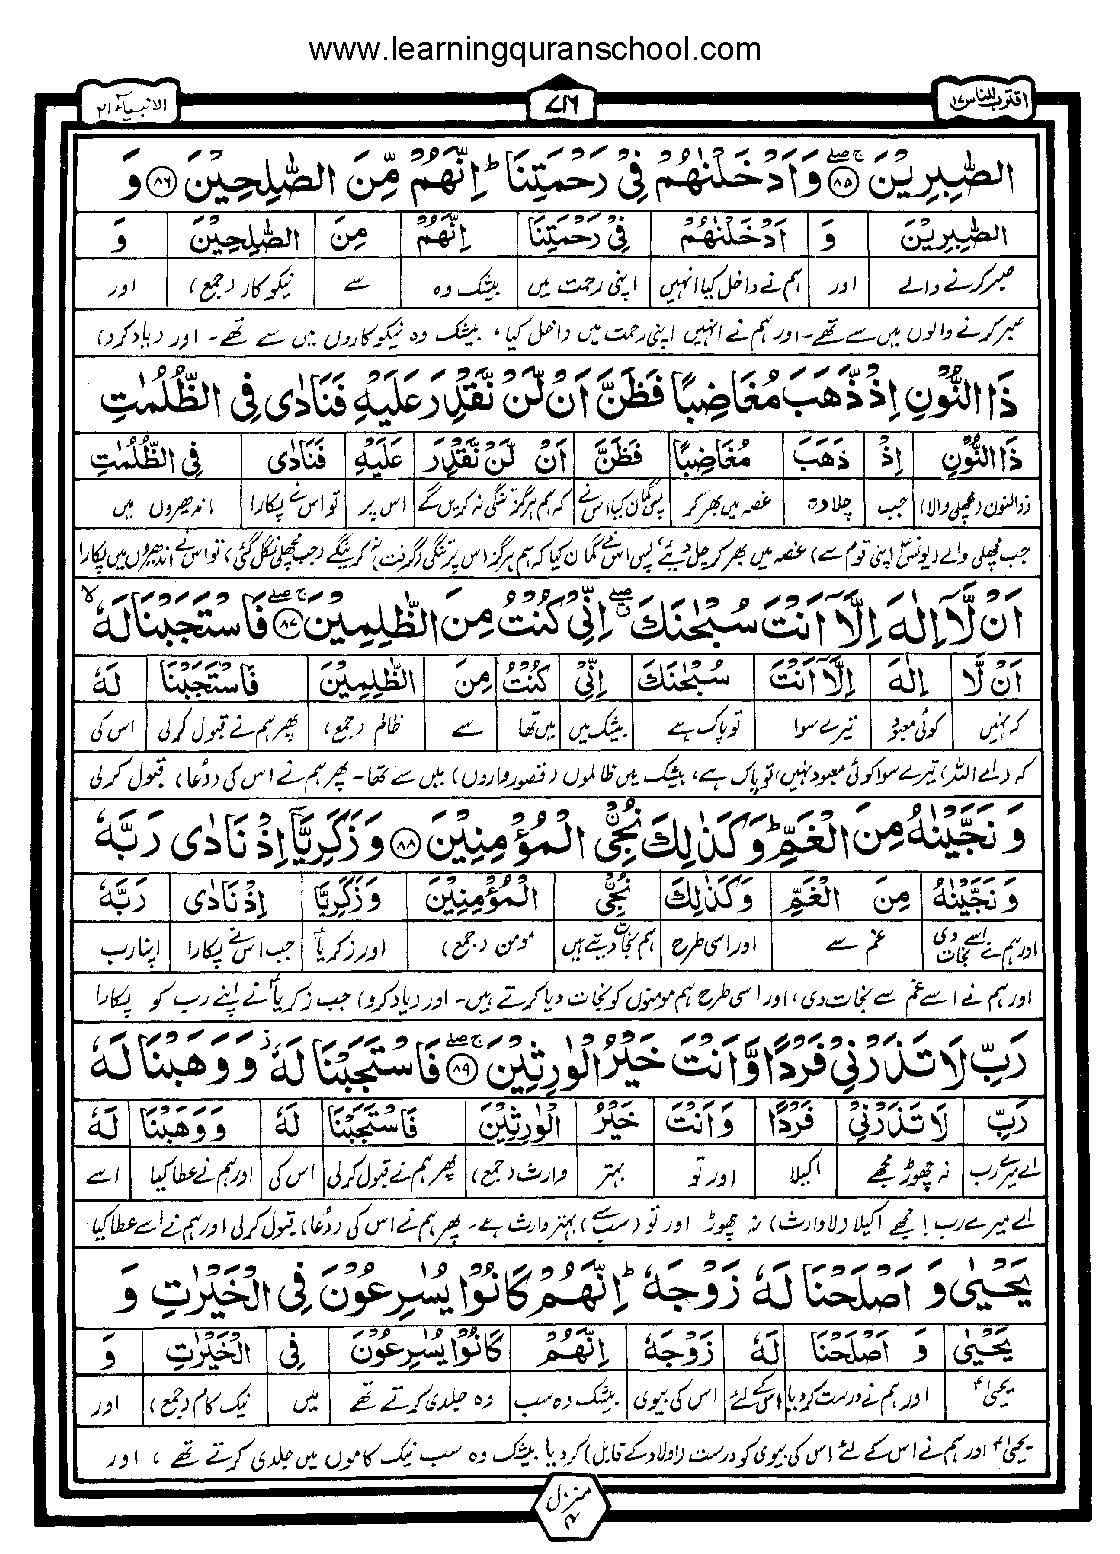 www.learningquranschool.com
اقترب للناس ۱۷
۷۱۶
الانبیآء ۲۱
الصّٰبِرِیْنَ ﴿۸۵﴾ وَاَدْخَلْنٰهُمْ فِیْ رَحْمَتِنَا ؕ اِنَّهُمْ مِّنَ الصّٰلِحِیْنَ ﴿۸۶﴾ وَ
الصّٰبِرِیْنَ وَ اَدْخَلْنٰهُمْ فِیْ رَحْمَتِنَا اِنَّهُمْ مِنَ الصّٰلِحِیْنَ وَ
صبر کرنے والے اور ہم نے داخل کیا انہیں اپنی رحمت میں بیشک وہ سے نیکو کار (جمع) اور
صبر کرنے والوں میں سے تھے۔ اور ہم نے انہیں اپنی رحمت میں داخل کیا، بیشک وہ نیکو کاروں میں سے تھے۔ اور (یاد کرو)
ذَا النُّوْنِ اِذْ ذَّهَبَ مُغَاضِبًا فَظَنَّ اَنْ لَّنْ نَّقْدِرَ عَلَیْهِ فَنَادٰی فِی الظُّلُمٰتِ
ذَا النُّوْنِ اِذْ ذَهَبَ مُغَاضِبًا فَظَنَّ اَنْ لَنْ نَّقْدِرَ عَلَیْهِ فَنَادٰی فِی الظُّلُمٰتِ
ذوالنون (مچھلی والا) جب چلا وہ غصہ میں بھر کر پس گمان کیا اس نے کہ ہم ہرگز تنگی نہ کریں گے اس پر تو اس نے پکارا اندھیروں میں
جب مچھلی والے (یونسؑ اپنی قوم سے) غصہ میں بھر کر چل دیئے، پس اس نے گمان کیا کہ ہم ہرگز اس پر تنگی (گرفت) نہ کرینگے (جب مچھلی نگل گئی) تو اس نے اندھیروں میں پکارا
اَنْ لَّاۤ اِلٰهَ اِلَّاۤ اَنْتَ سُبْحٰنَكَ اِنِّیْ كُنْتُ مِنَ الظّٰلِمِیْنَ ﴿۸۷﴾ فَاسْتَجَبْنَا لَهٗ
اَنْ لَّا اِلٰهَ اِلَّاۤ اَنْتَ سُبْحٰنَكَ اِنِّیْ كُنْتُ مِنَ الظّٰلِمِیْنَ فَاسْتَجَبْنَا لَهٗ
کہ نہیں کوئی معبود تیرے سوا تو پاک ہے بیشک میں میں تھا سے ظالم (جمع) پھر ہم نے قبول کر لی اس کی
کہ (اے اللہ) تیرے سوا کوئی معبود نہیں، تو پاک ہے، بیشک میں ظالموں (قصور واروں) میں سے تھا۔ پھر ہم نے اس کی (دعا) قبول کر لی
وَ نَجَّیْنٰهُ مِنَ الْغَمِّ ؕ وَكَذٰلِكَ نُـنْجِی الْمُؤْمِنِیْنَ ﴿۸۸﴾ وَ زَكَرِیَّاۤ اِذْ نَادٰی رَبَّهٗ
وَ نَجَّیْنٰهُ مِنَ الْغَمِّ وَكَذٰلِكَ نُـنْجِی الْمُؤْمِنِیْنَ وَزَكَرِیَّاۤ اِذْ نَادٰی رَبَّهٗ
اور ہم نے اسے نجات دی غم سے اور اسی طرح ہم نجات دیتے ہیں مومن (جمع) اور زکریاؑ جب اس نے پکارا اپنا رب
اور ہم نے اسے غم سے نجات دی، اور اسی طرح ہم مومنوں کو نجات دیا کرتے ہیں۔ اور (یاد کرو) جب زکریاؑ نے اپنے رب کو پکارا
رَبِّ لَا تَذَرْنِیْ فَرْدًا وَّاَنْتَ خَیْرُ الْوٰرِثِیْنَ ﴿۸۹﴾ فَاسْتَجَبْنَا لَهٗ ؗ وَوَهَبْنَا لَهٗ
رَبِّ لَا تَذَرْنِیْ فَرْدًا وَ اَنْتَ خَیْرُ الْوٰرِثِیْنَ فَاسْتَجَبْنَا لَهٗ وَوَهَبْنَا لَهٗ
اے میرے رب نہ چھوڑ مجھے اکیلا اور تو بہتر وارث (جمع) پھر ہم نے قبول کر لی اس کی اور ہم نے عطا کیا اسے
اے میرے رب! مجھے اکیلا (لاوارث) نہ چھوڑ اور تو (سب سے) بہتر وارث ہے۔ پھر ہم نے اس کی (دعا) قبول کر لی اور ہم نے اسے عطا کیا
یَحْیٰی وَ اَصْلَحْنَا لَهٗ زَوْجَهٗ ؕ اِنَّهُمْ كَانُوْا یُسٰرِعُوْنَ فِی الْخَیْرٰتِ وَ
یَحْیٰی وَ اَصْلَحْنَا لَهٗ زَوْجَهٗ اِنَّهُمْ كَانُوْا یُسٰرِعُوْنَ فِی الْخَیْرٰتِ وَ
یحییٰؑ اور ہم نے درست کر دیا اس کے لئے اس کی بیوی بیشک وہ سب وہ جلدی کرتے تھے میں نیک کام (جمع) اور
یحییٰؑ اور ہم نے اس کے لئے اس کی بیوی کو درست (اولاد کے قابل) کر دیا بیشک وہ سب نیک کاموں میں جلدی کرتے تھے، اور
منزل ۴